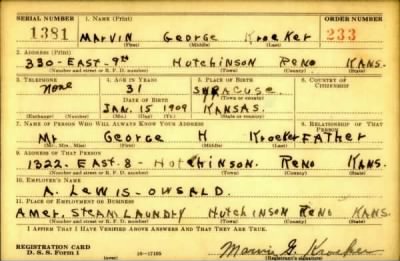 SERIAL NUMBER 1. NAME (Print) ORDER NUMBER
1381 MARVIN George Kroeker 233
(First) (Middle) (Last)
2. ADDRESS (Print)
330-EAST-9th Hutchinson Reno Kans.
(Number and street or R. F. D. number) (Town) (County) (State)
3. TELEPHONE 4. AGE IN YEARS 5. PLACE OF BIRTH 6. COUNTRY OF CITIZENSHIP
None 31 SYRACUSE
DATE OF BIRTH (Town or county)
JAN. 15 1909 KANSAS.
(Exchange) (Number) (Mo.) (Day) (Yr.) (State or country)
7. NAME OF PERSON WHO WILL ALWAYS KNOW YOUR ADDRESS 8. RELATIONSHIP OF THAT PERSON
Mr George H Kroeker FATHER
(Mr., Mrs., Miss) (First) (Middle) (Last)
9. ADDRESS OF THAT PERSON
1322. EAST. 8 - Hutchinson. Reno Kans.
(Number and street or R. F. D. number) (Town) (County) (State)
10. EMPLOYER'S NAME
A. Lewis-OWSALD.
11. PLACE OF EMPLOYMENT OR BUSINESS
Amer. STEAM LAUNDRY Hutchinson Reno Kans.
(Number and street or R. F. D. number) (Town) (County) (State)
I AFFIRM THAT I HAVE VERIFIED ABOVE ANSWERS AND THAT THEY ARE TRUE.
REGISTRATION CARD
D. S. S. Form 1 16-17105 Marvin G. Kroeker